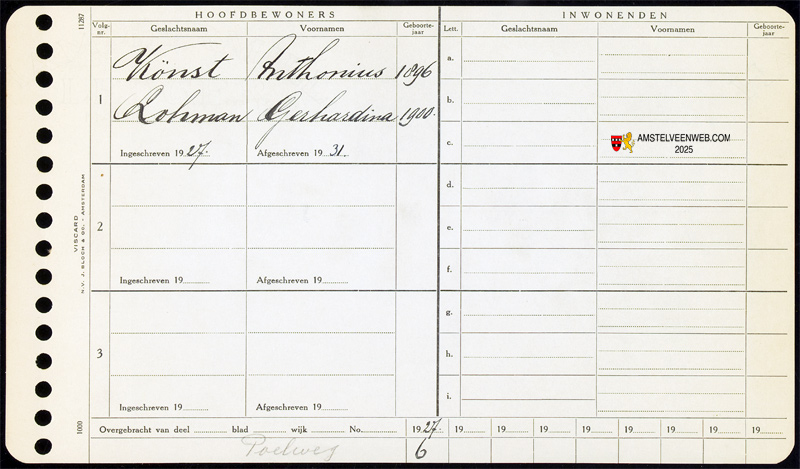 11287
HOOFDBEWONERS
INWONENDEN
Volg-nr. Geslachtsnaam Voornamen Geboorte-jaar
Lett. Geslachtsnaam Voornamen Geboorte-jaar
1
Könst Anthonius 1896
Lohman Gerhardina 1900.
Ingeschreven 1927. Afgeschreven 1931.
2
Ingeschreven 19 Afgeschreven 19
3
Ingeschreven 19 Afgeschreven 19
a.
b.
c.
AMSTELVEENWEB.COM
2025
d.
e.
f.
g.
h.
i.
VISCARD
N.V. J. BLOCH & Co. - AMSTERDAM
1000
Overgebracht van deel blad wijk No. 1927. 19 19 19 19 19 19 19 19
Poelweg
6